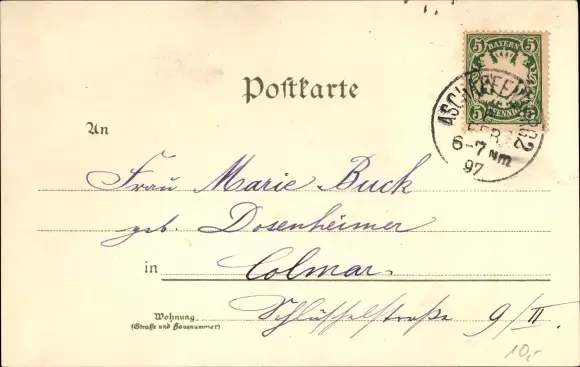 5 BAYERN 5
5 PFENNIG 5
6-7 Nm
97
Postkarte
An
Frau Marie Buck
geb. Dosenheimer
in Colmar.
Wohnung Schlüsselstraße 9/II
(Straße und Hausnummer)
10,-